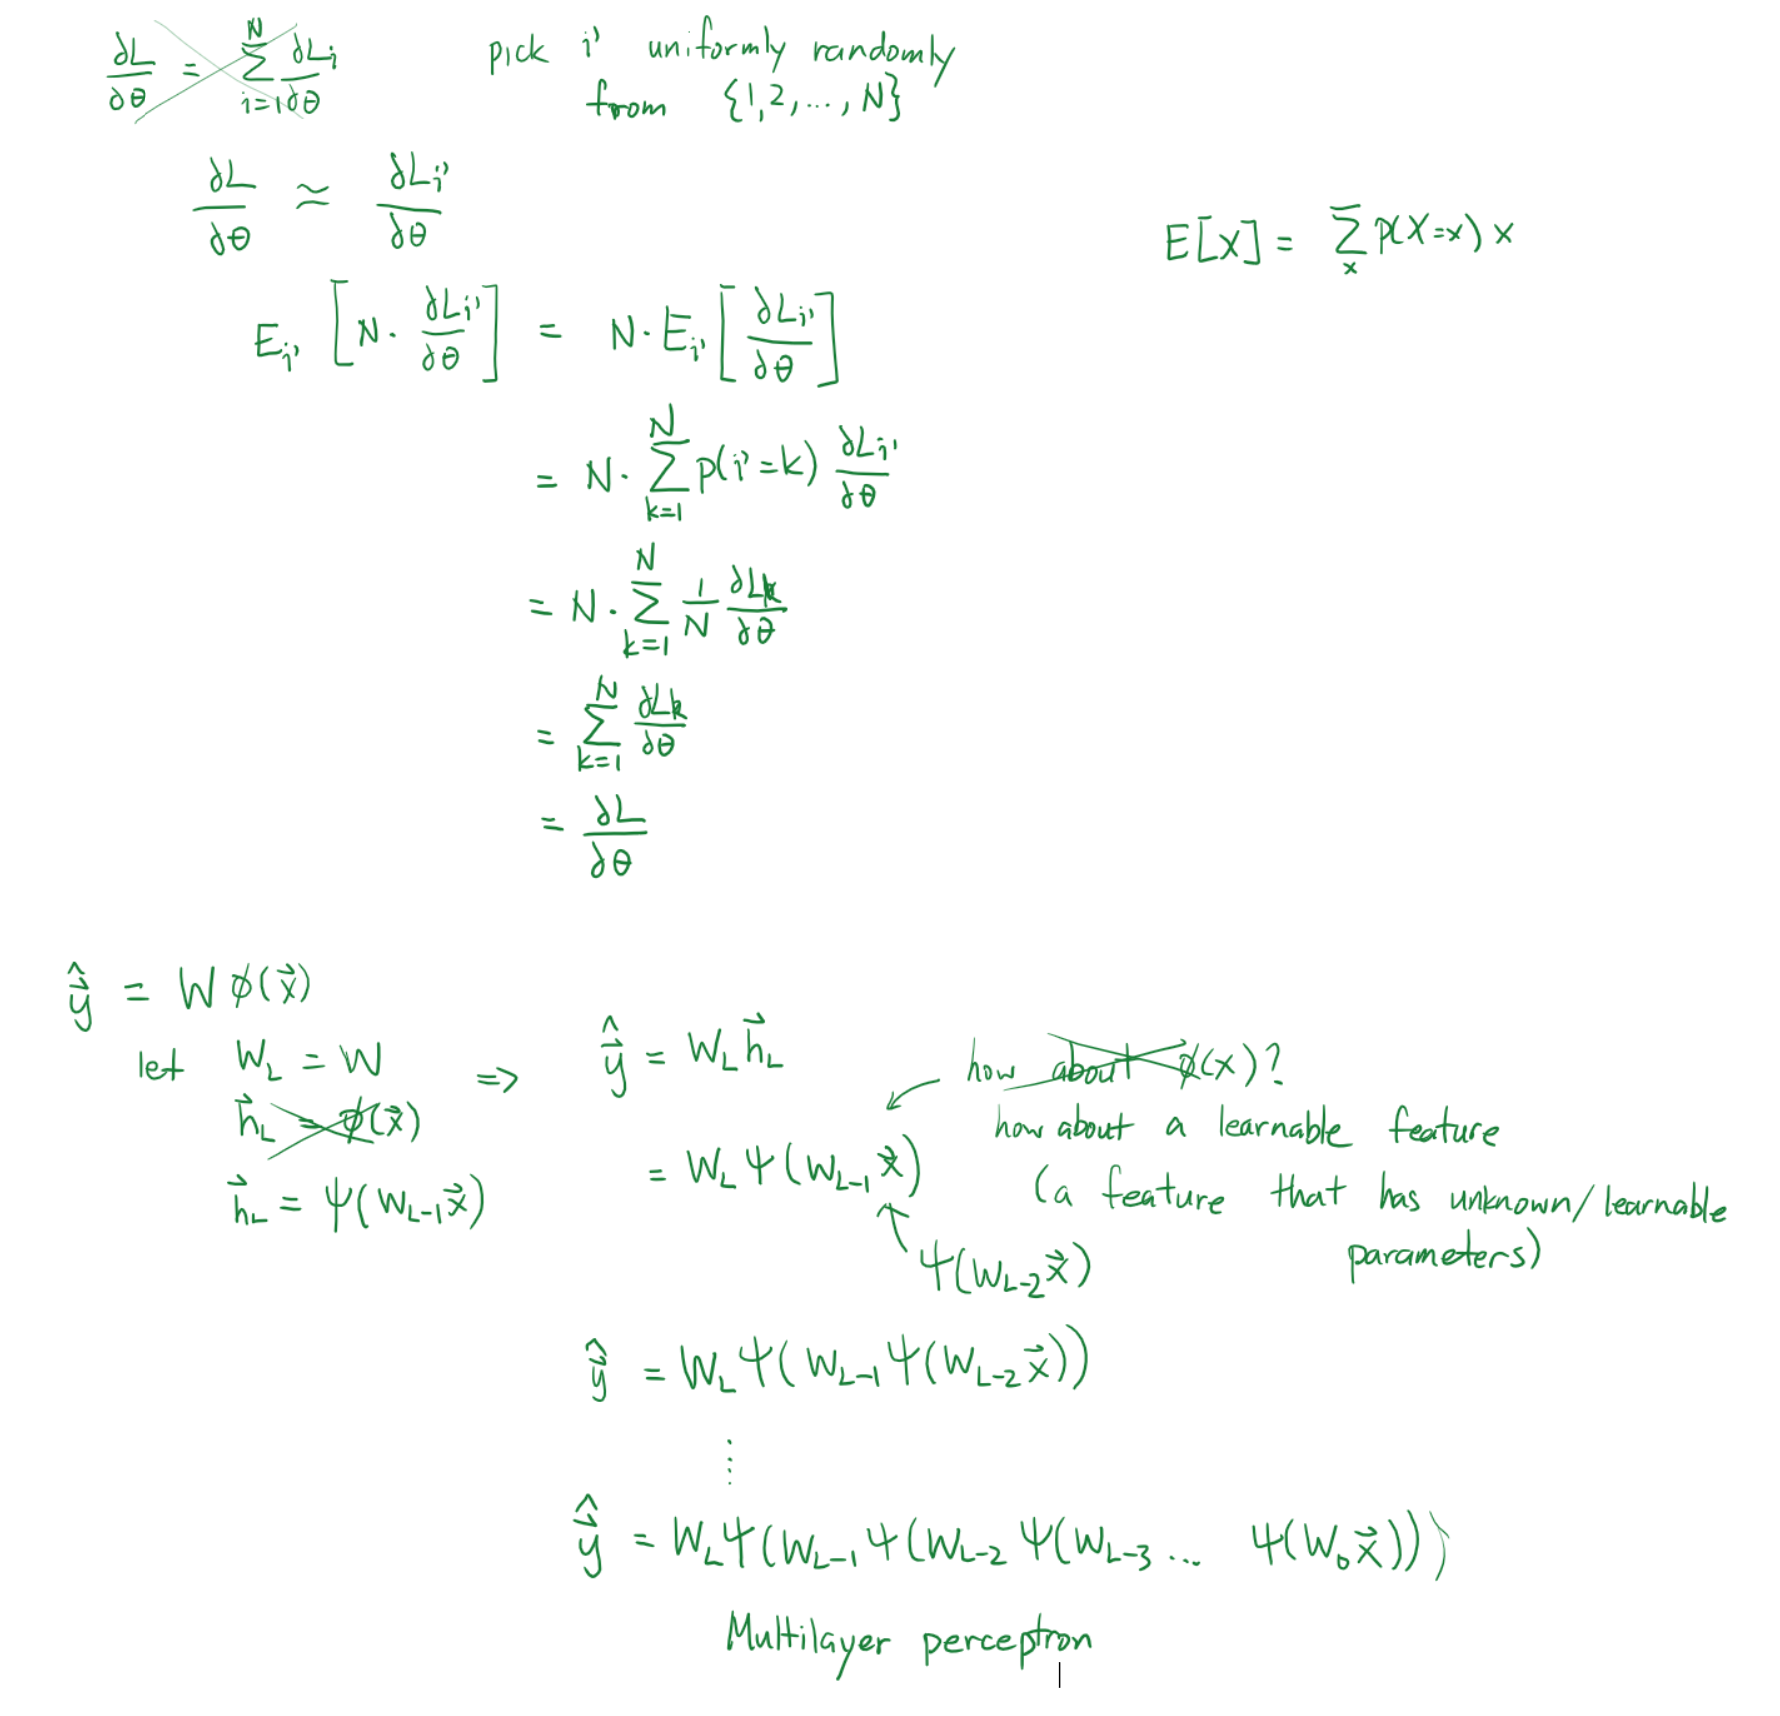 ∂L/∂θ = Σ_{i=1}^{N} ∂L_i/∂θ    pick i' uniformly randomly
from {1,2,...,N}
∂L/∂θ ≃ ∂L_{i'}/∂θ
E[X] = Σ_x p(X=x) x
E_{i'} [N · ∂L_{i'}/∂θ] = N · E_{i'} [∂L_{i'}/∂θ]
= N · Σ_{k=1}^{N} p(i'=k) ∂L_{i'}/∂θ
= N · Σ_{k=1}^{N} 1/N ∂L_k/∂θ
= Σ_{k=1}^{N} ∂L_k/∂θ
= ∂L/∂θ
ŷ⃗ = W ϕ(x⃗)
let W_L = W
h⃗_L = ϕ(x⃗)
h⃗_L = ψ(W_{L-1} x⃗)
⇒ ŷ⃗ = W_L h⃗_L
= W_L ψ(W_{L-1} x⃗)
how about ϕ(x)?
how about a learnable feature
(a feature that has unknown/learnable
parameters)
ψ(W_{L-2} x⃗)
ŷ⃗ = W_L ψ(W_{L-1} ψ(W_{L-2} x⃗))
⋮
ŷ⃗ = W_L ψ(W_{L-1} ψ(W_{L-2} ψ(W_{L-3} ... ψ(W_0 x⃗))))
Multilayer perceptron